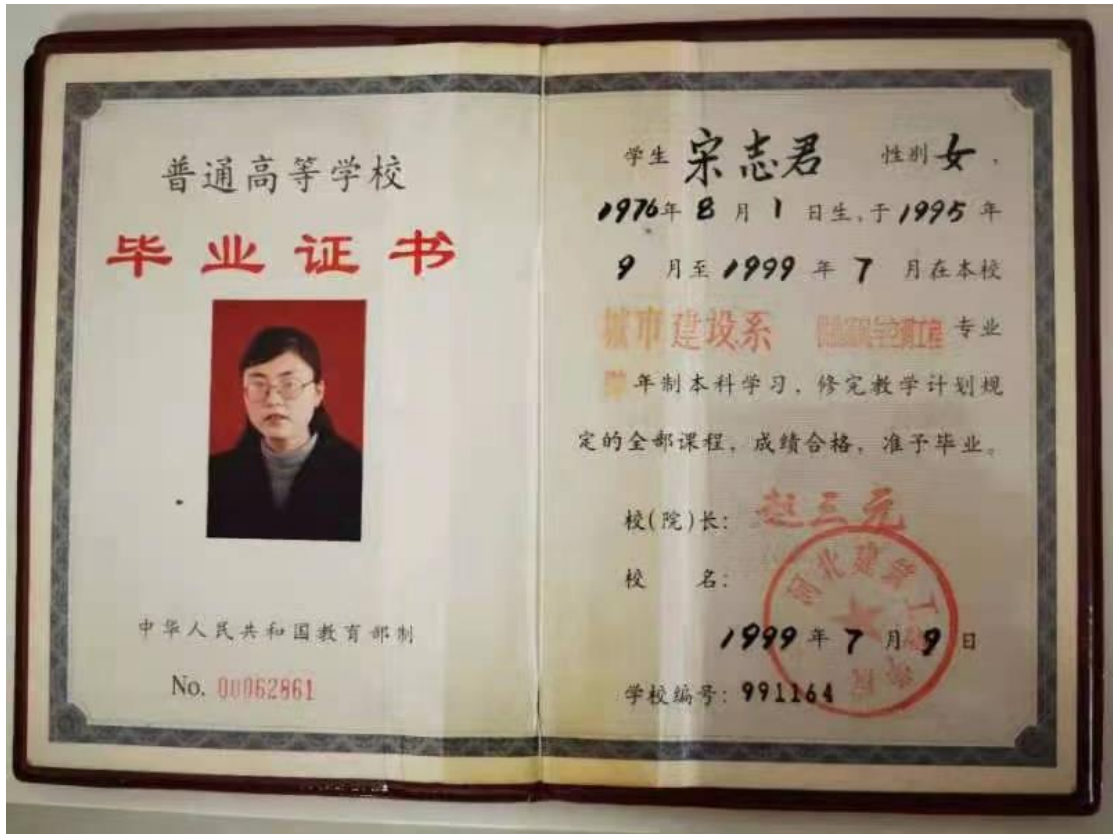 普通高等学校
毕业证书
中华人民共和国教育部制
No. 00062861
学生 宋志君 性别 女，
1976年 8 月 1 日生，于 1995 年
9 月至 1999 年 7 月在本校
城市建设系 专业
年制本科学习，修完教学计划规
定的全部课程，成绩合格，准予毕业。
校(院)长： 赵三元
校 名：
河北建筑工程学院
1999 年 7 月 9 日
学校编号：991164